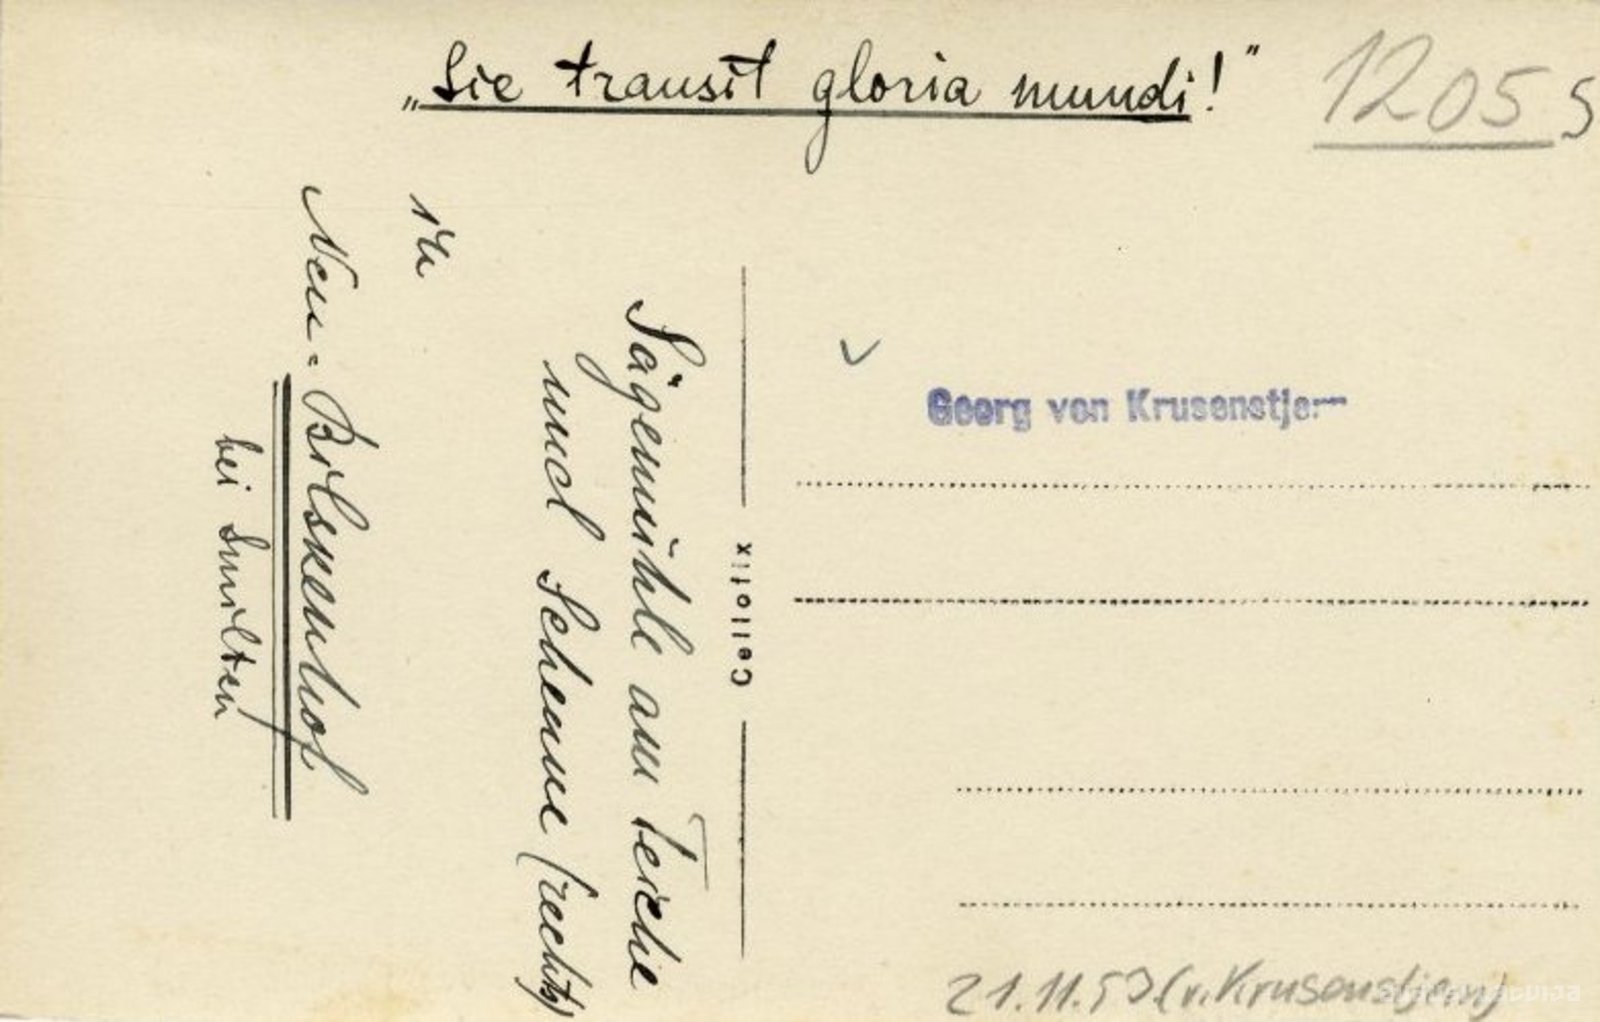 „Sic transit gloria mundi!"
12055
Sägemühle am Teiche
und Scheune (rechts)
in
Neu-Bilskenhof
bei Smilten
Cellofix
Georg von Krusenstjern
21.11.53. (v. Krusenstjern)